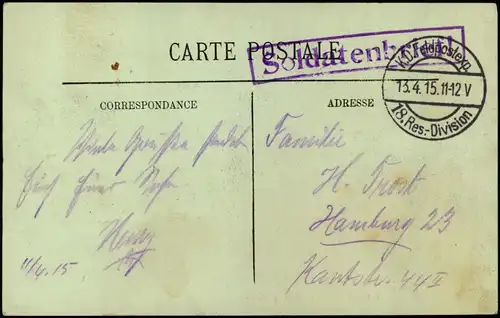 CARTE POSTALE
Soldatenbrief
K.D.Feldpostexp.
13.4.15.11-12 V
18.Res.-Division
CORRESPONDANCE
ADRESSE
Viele Grüsse sendet
Euch Euer Sohn
11/4.15
Familie
H. Trost
Hamburg 23
Kantstr. 44 II